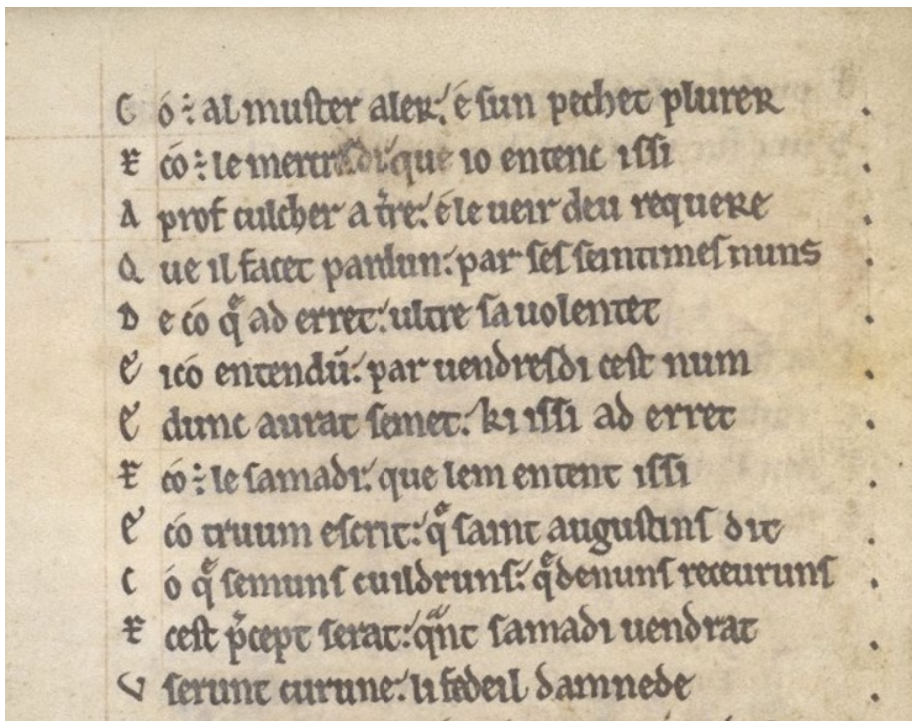 C ó ÷ al muster aler. é sun pechet plurer .
E có ÷ le mercresdi que io entenc issi .
A prof culcher a tr̃e. é le ueir deu requere .
Q ue il facet pardun. par ses seintimes nuns .
D e có q̃ ad erret. ultre sa uolentet .
E icó entendũ. par uendresdi cest num .
E dunc aurat semet. ki issi ad erret .
E có ÷ le samadi. que lem entent issi .
E có truum escrit. q̃ saint augustins dit .
C ó q̃ semuns cuildruns. q̃ denuns receuruns .
E cest p̃cept serat. qͣnt samadi uendrat .
V serunt curune. li fedeil damnede .